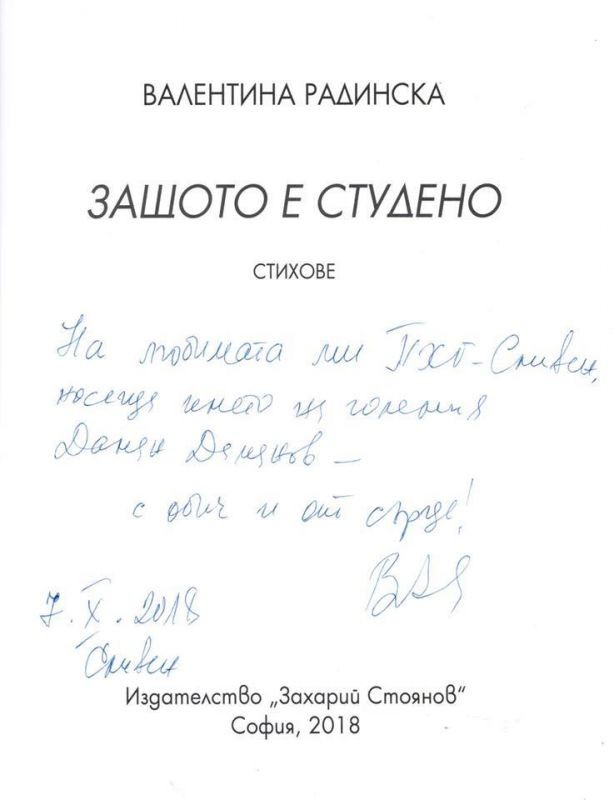 ВАЛЕНТИНА РАДИНСКА
ЗАЩОТО Е СТУДЕНО
СТИХОВЕ
На любимата ми ПХГ - Сливен,
носеща името на големия
Дамян Дамянов —
с обич и от сърце!
7. X. 2018
Сливен
Издателство „Захарий Стоянов“
София, 2018